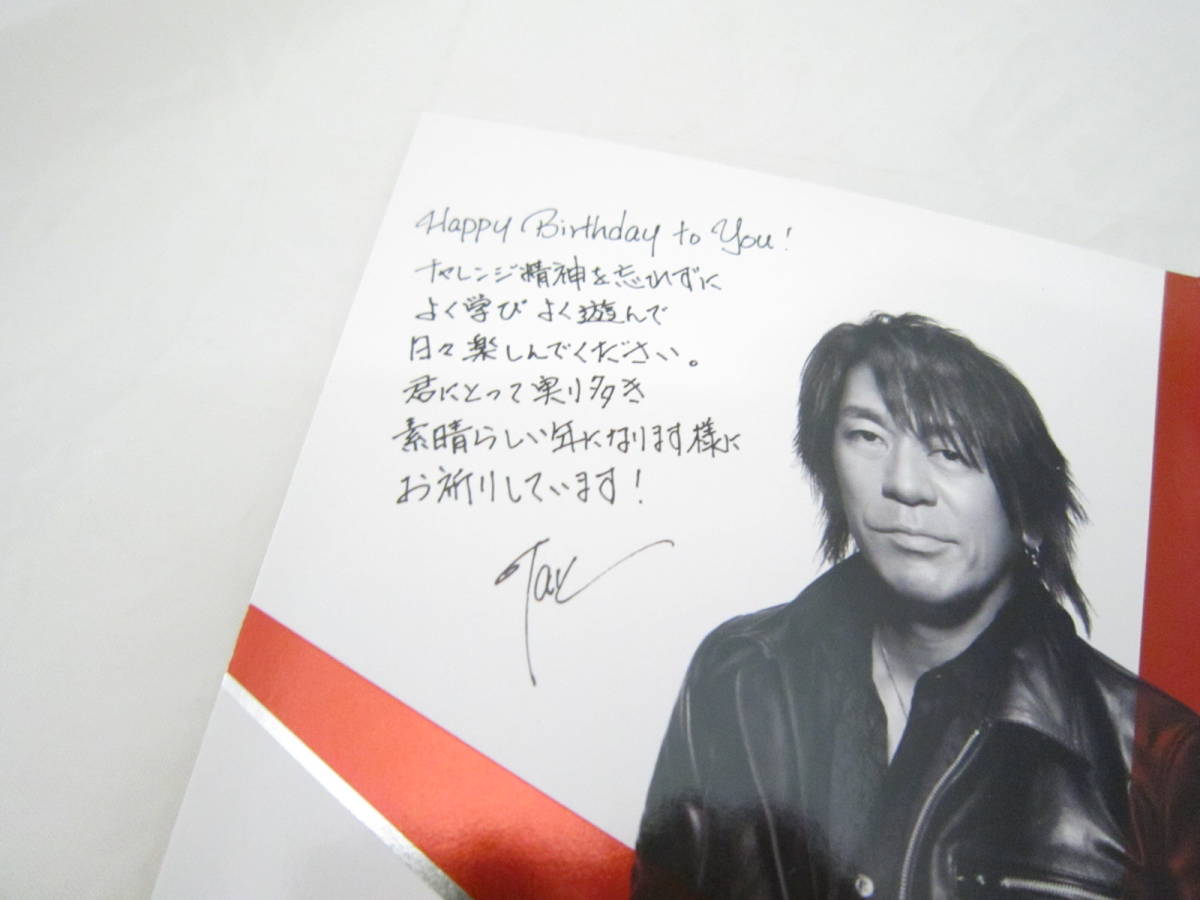 Happy Birthday to You!
チャレンジ精神を忘れずに
よく学び よく遊んで
日々楽しんでください。
君にとって実り多き
素晴らしい年になります様に
お祈りしています!
Tak